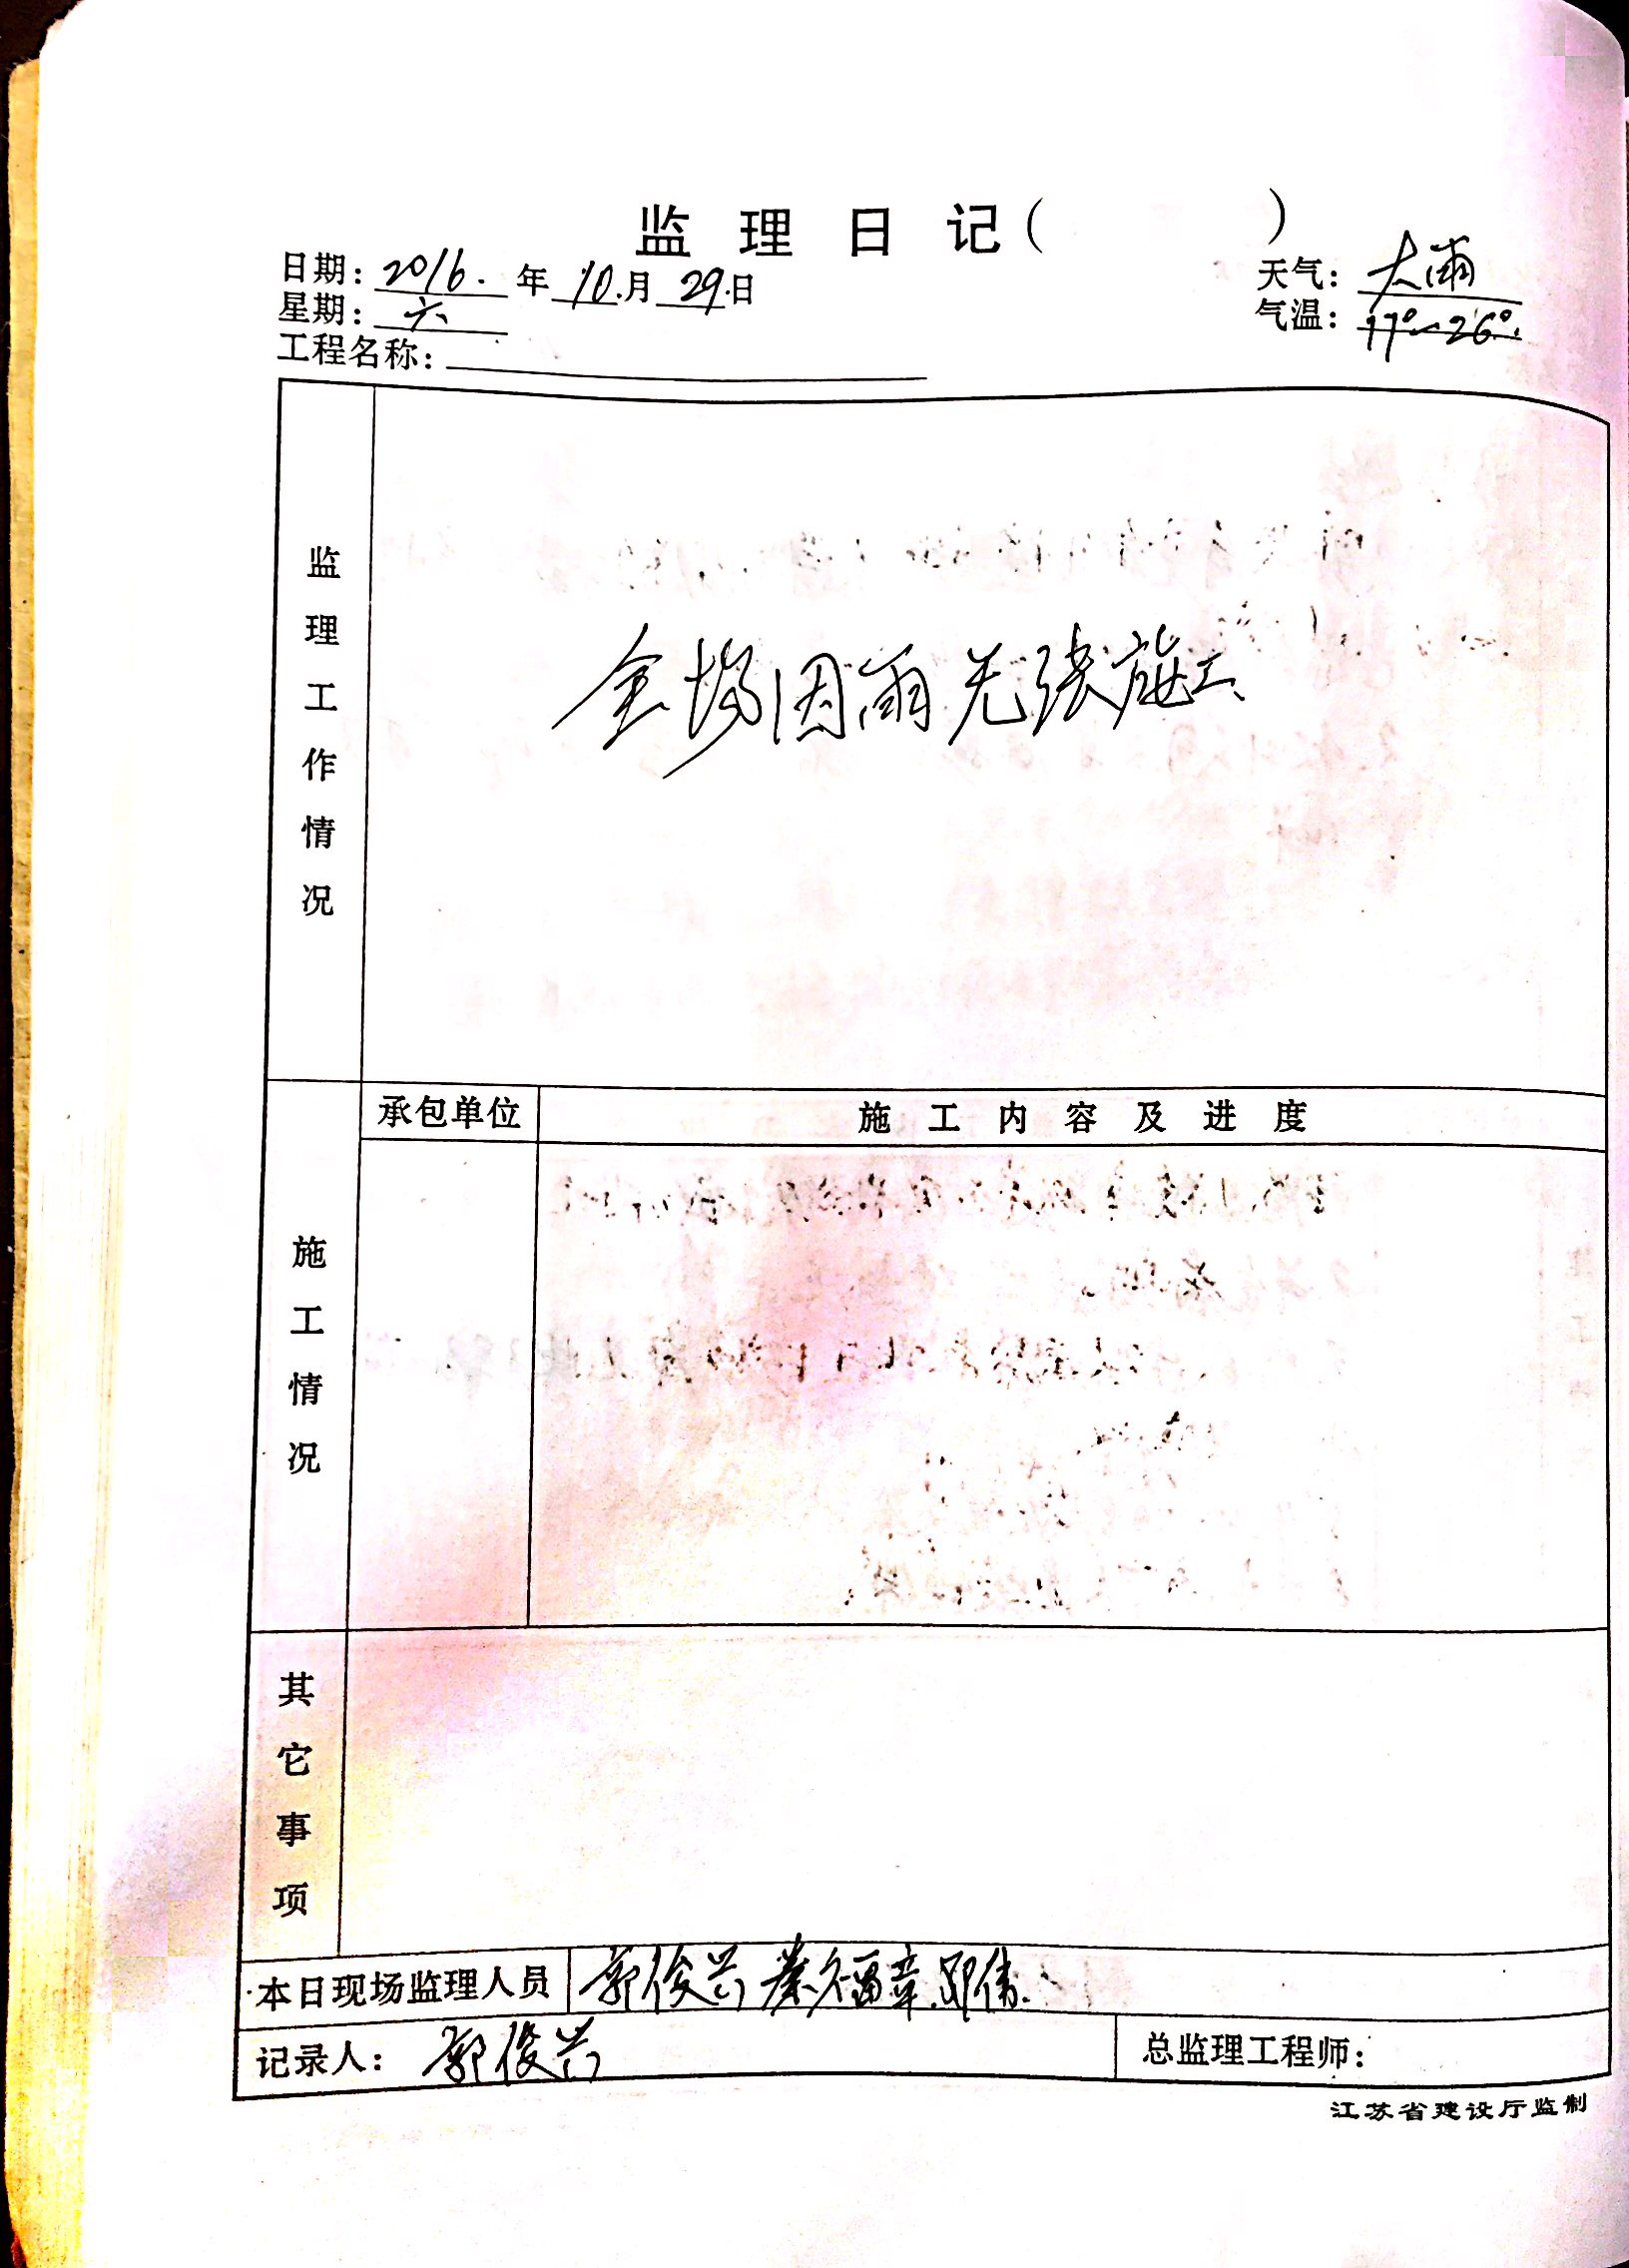 监理日记( )
日期: 2016. 年 10.月 29.日
天气: 大雨
星期: 六
气温: 17°~26°.
工程名称:
监理工作情况
全场因雨无法施工
承包单位
施工内容及进度
施工情况
其它事项
本日现场监理人员 郭俊兴 秦福章.邹伟.
记录人: 郭俊兴
总监理工程师:
江苏省建设厅监制